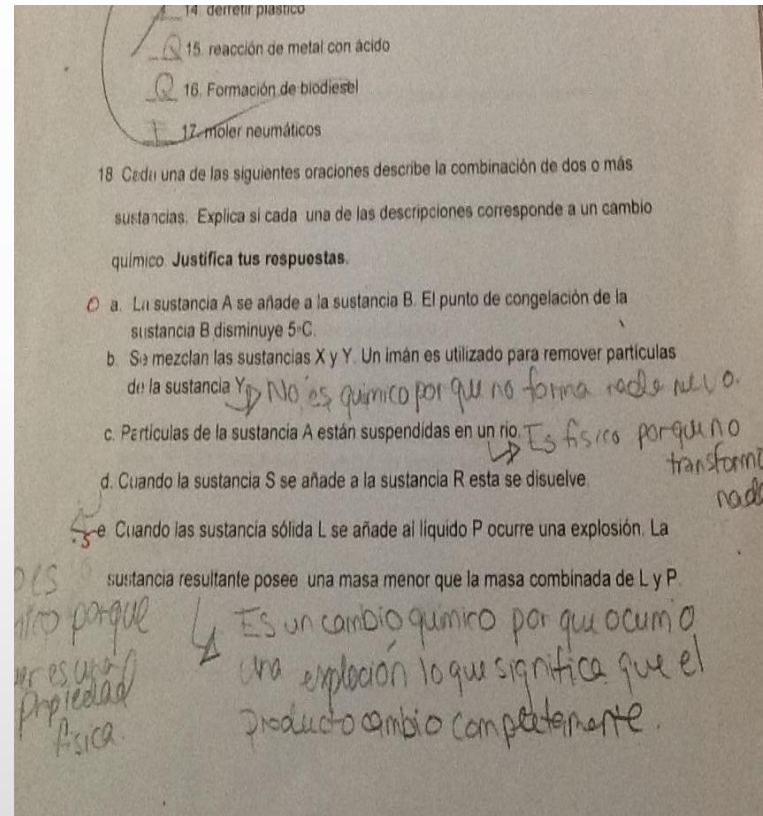 14. derretir plástico
Q 15. reacción de metal con ácido
Q 16. Formación de biodiesel
F 17. moler neumáticos
18 Cada una de las siguientes oraciones describe la combinación de dos o más
sustancias. Explica si cada una de las descripciones corresponde a un cambio
químico. Justifica tus respuestas.
a. La sustancia A se añade a la sustancia B. El punto de congelación de la
sustancia B disminuye 5°C.
b. Se mezclan las sustancias X y Y. Un imán es utilizado para remover partículas
de la sustancia Y. No es químico por que no forma nada nuevo.
c. Partículas de la sustancia A están suspendidas en un río. Es físico porque no
transforma
nada
d. Cuando la sustancia S se añade a la sustancia R esta se disuelve.
.5 e. Cuando las sustancia sólida L se añade al líquido P ocurre una explosión. La
sustancia resultante posee una masa menor que la masa combinada de L y P.
porque
es una
propiedad
física.
Es un cambio quimico por que ocurrio
una exploción lo que significa que el
producto cambio completamente.